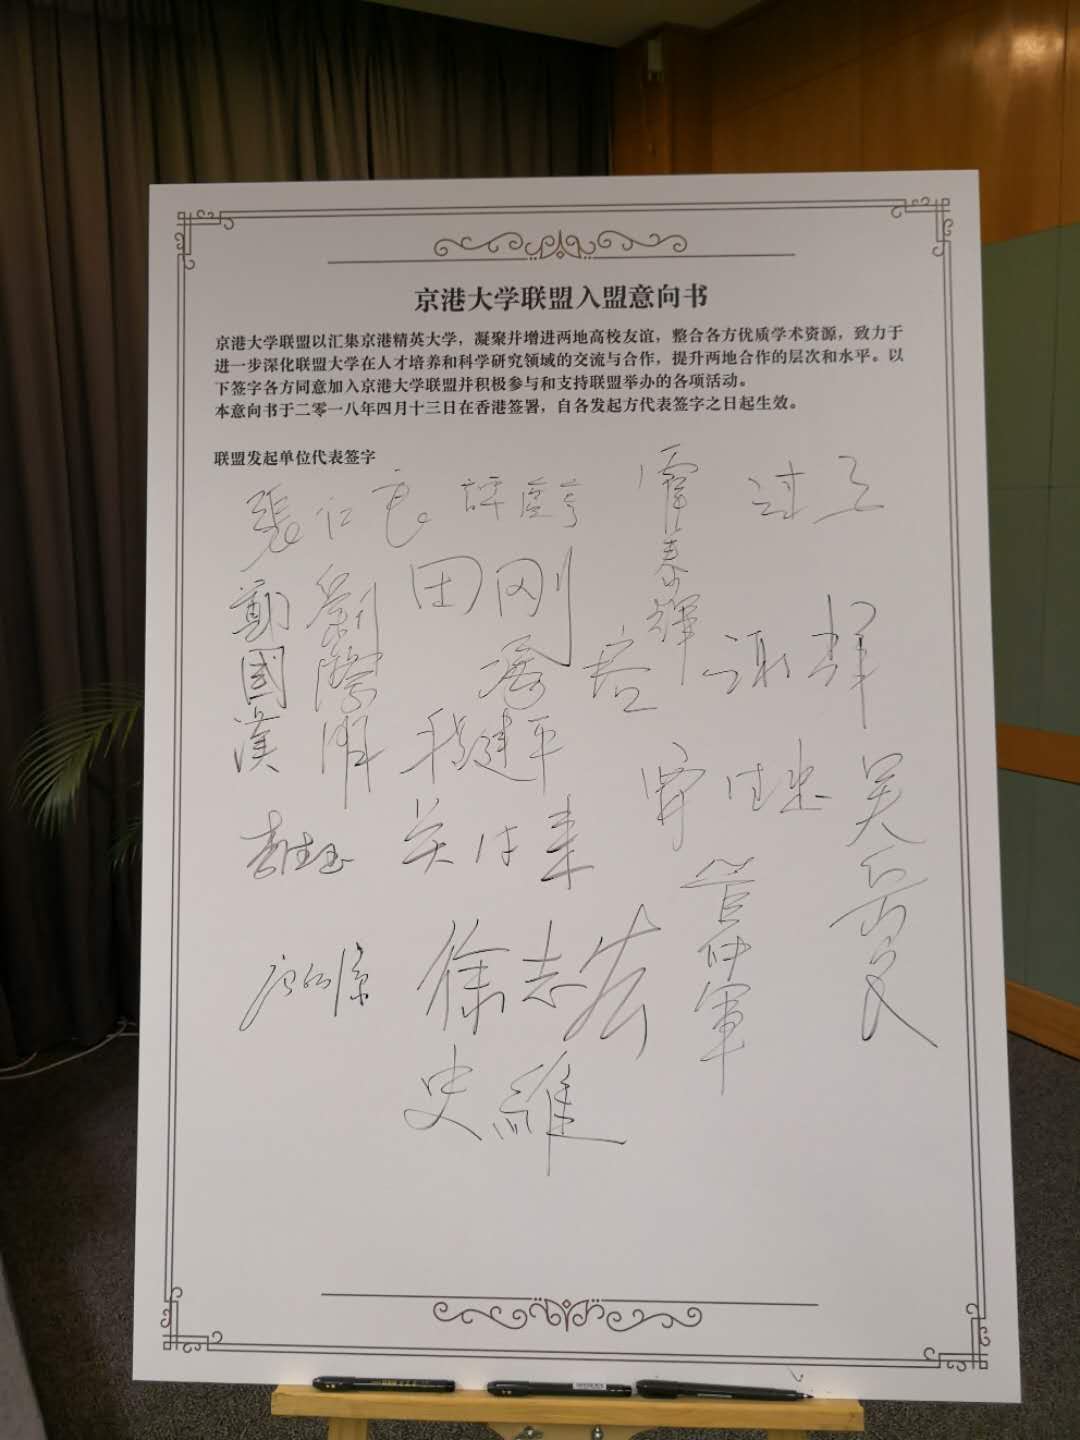 京港大学联盟入盟意向书
京港大学联盟以汇集京港精英大学，凝聚并增进两地高校友谊，整合各方优质学术资源，致力于
进一步深化联盟大学在人才培养和科学研究领域的交流与合作，提升两地合作的层次和水平。以
下签字各方同意加入京港大学联盟并积极参与和支持联盟举办的各项活动。
本意向书于二零一八年四月十三日在香港签署，自各发起方代表签字之日起生效。
联盟发起单位代表签字
張仁良
田刚
鄭國漢
劉際明
程建平
徐志宏
管仲軍
史維